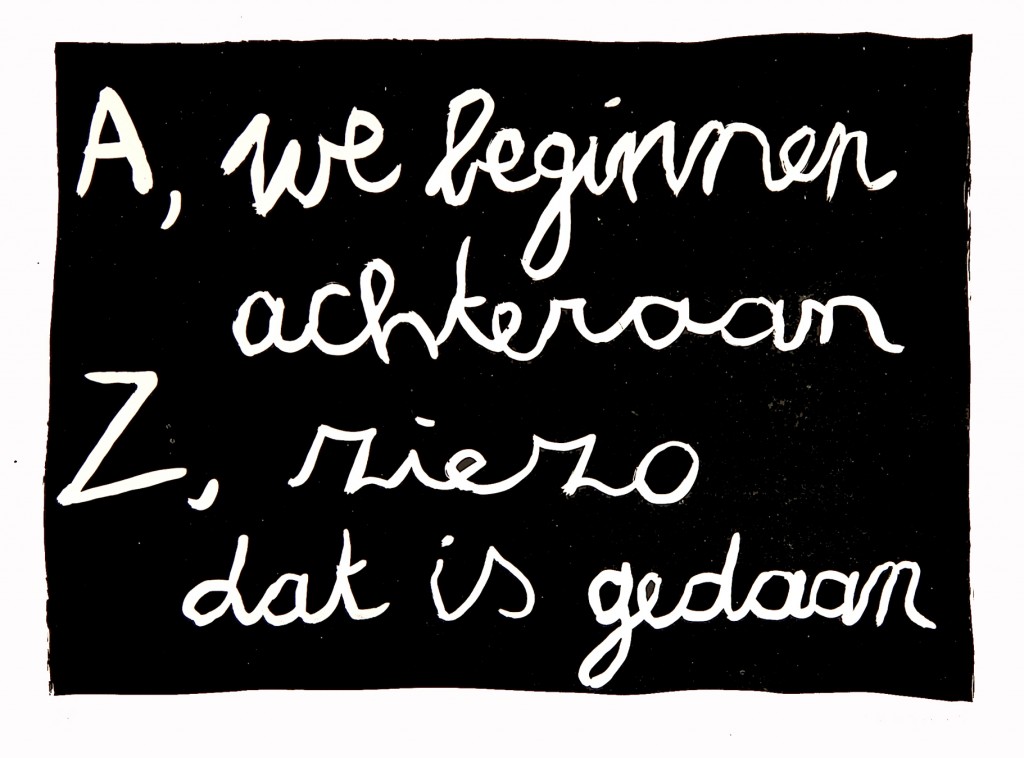 A, we beginnen
achteraan
Z, ziezo
dat is gedaan